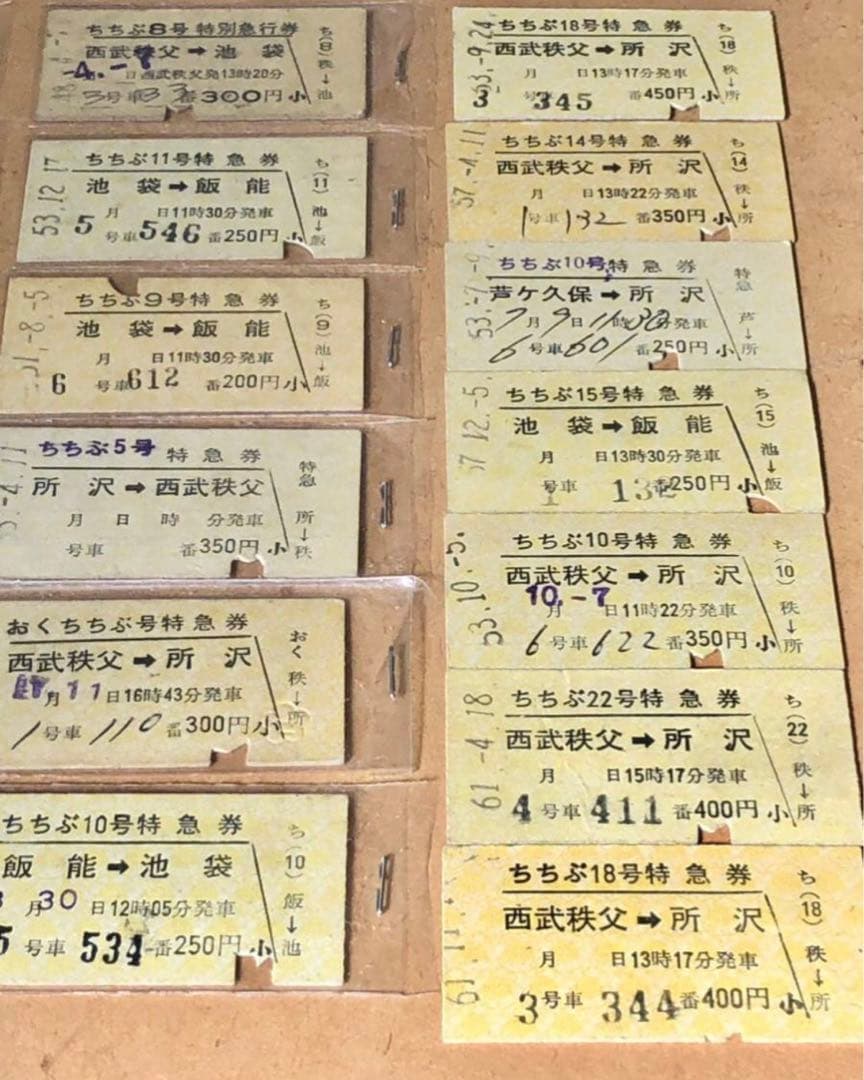 ちちぶ8号特別急行券
西武秩父➡池袋
-4.-8
日西武秩父発13時20分
3号車33番300円小
ち(8)秩→池
ちちぶ11号特急券
池袋➡飯能
53.12.17
月 日11時30分発車
5号車546番250円小
ち(11)池→飯
ちちぶ9号特急券
池袋➡飯能
51.-8.-5
月 日11時30分発車
6号車612番200円小
ち(9)池→飯
ちちぶ5号特急券
所沢➡西武秩父
月 日 時 分発車
号車 番350円小
特急 所→秩
おくちちぶ号特急券
西武秩父➡所沢
月11日16時43分発車
1号車110番300円小
おく 秩→所
ちちぶ10号特急券
飯能➡池袋
月30日12時05分発車
5号車534番250円小
ち(10)飯→池
ちちぶ18号特急券
西武秩父➡所沢
63.-9.24
月 日13時17分発車
3号車345番450円小
ち(18)秩→所
ちちぶ14号特急券
西武秩父➡所沢
57.-4.11
月 日13時22分発車
1号車132番350円小
ち(14)秩→所
ちちぶ10号特急券
芦ケ久保➡所沢
53.-7.-9
7月9日11時30分発車
6号車601番250円小
特急 芦→所
ちちぶ15号特急券
池袋➡飯能
57.12.-5
月 日13時30分発車
1号車13番250円小
ち(15)池→飯
ちちぶ10号特急券
西武秩父➡所沢
53.10.-5
10.-7
月 日11時22分発車
6号車622番350円小
ち(10)秩→所
ちちぶ22号特急券
西武秩父➡所沢
61.-4.18
月 日15時17分発車
4号車411番400円小
ち(22)秩→所
ちちぶ18号特急券
西武秩父➡所沢
61.11
月 日13時17分発車
3号車344番400円小
ち(18)秩→所